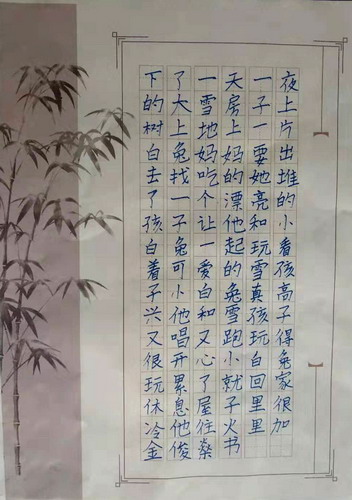 下了一天一夜
的大雪房子上
树上地上一片
白兔妈妈要出
去找吃的她堆
了一个漂亮的
孩子让他和小
白兔一起玩看
着可爱的雪孩
子小白兔真高
兴他和雪孩子
又唱又跑玩得
很开心小白兔
玩累了就回家
休息屋子里很
冷他往火里加
金俊燊书